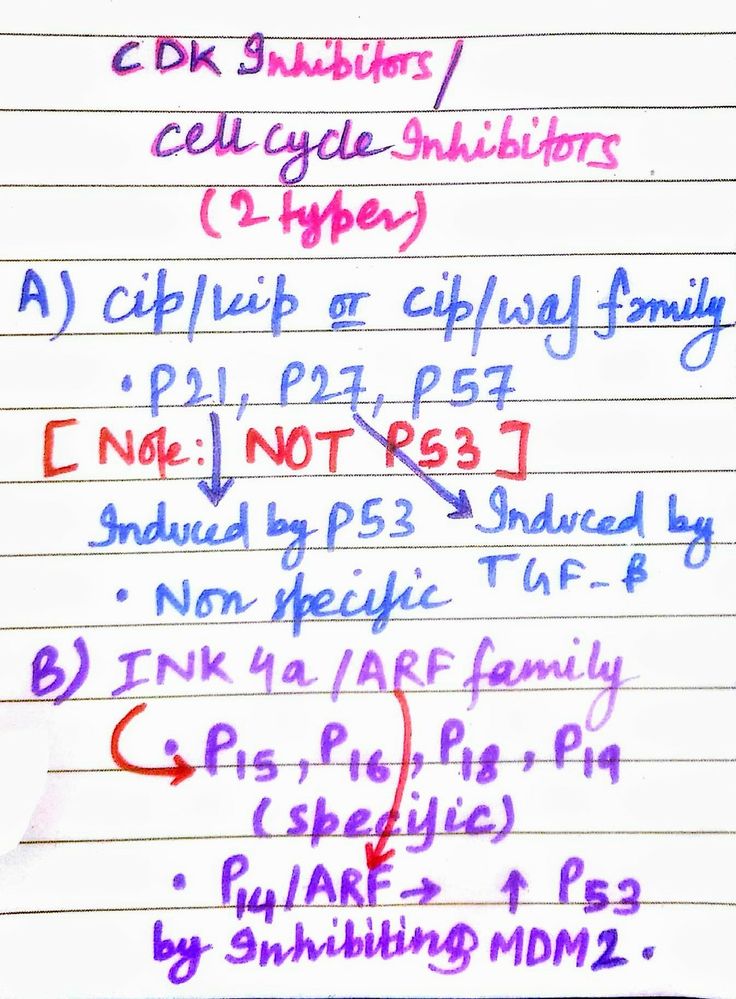 CDK Inhibitors/
Cell cycle Inhibitors
(2 types)
A) Cip/kip or cip/waf family
• P21, P27, P57
[Note: NOT P53]
Induced by P53 Induced by
TGF-β
• Non specific
B) INK 4a/ARF family
• P15, P16, P18, P19
(specific)
• P14/ARF → ↑ P53
by Inhibiting MDM2.